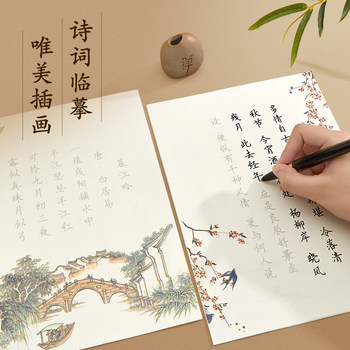 诗词临摹
唯美插画
多情自古 堪 冷落清
秋节 今宵酒 杨柳岸 晓风
残月 此去经年 应是良辰好景虚
设 便纵有千种风情 更与何人说
暮江吟
唐 白居易
一道残阳铺水中
半江瑟瑟半江红
可怜九月初三夜
露似真珠月似弓